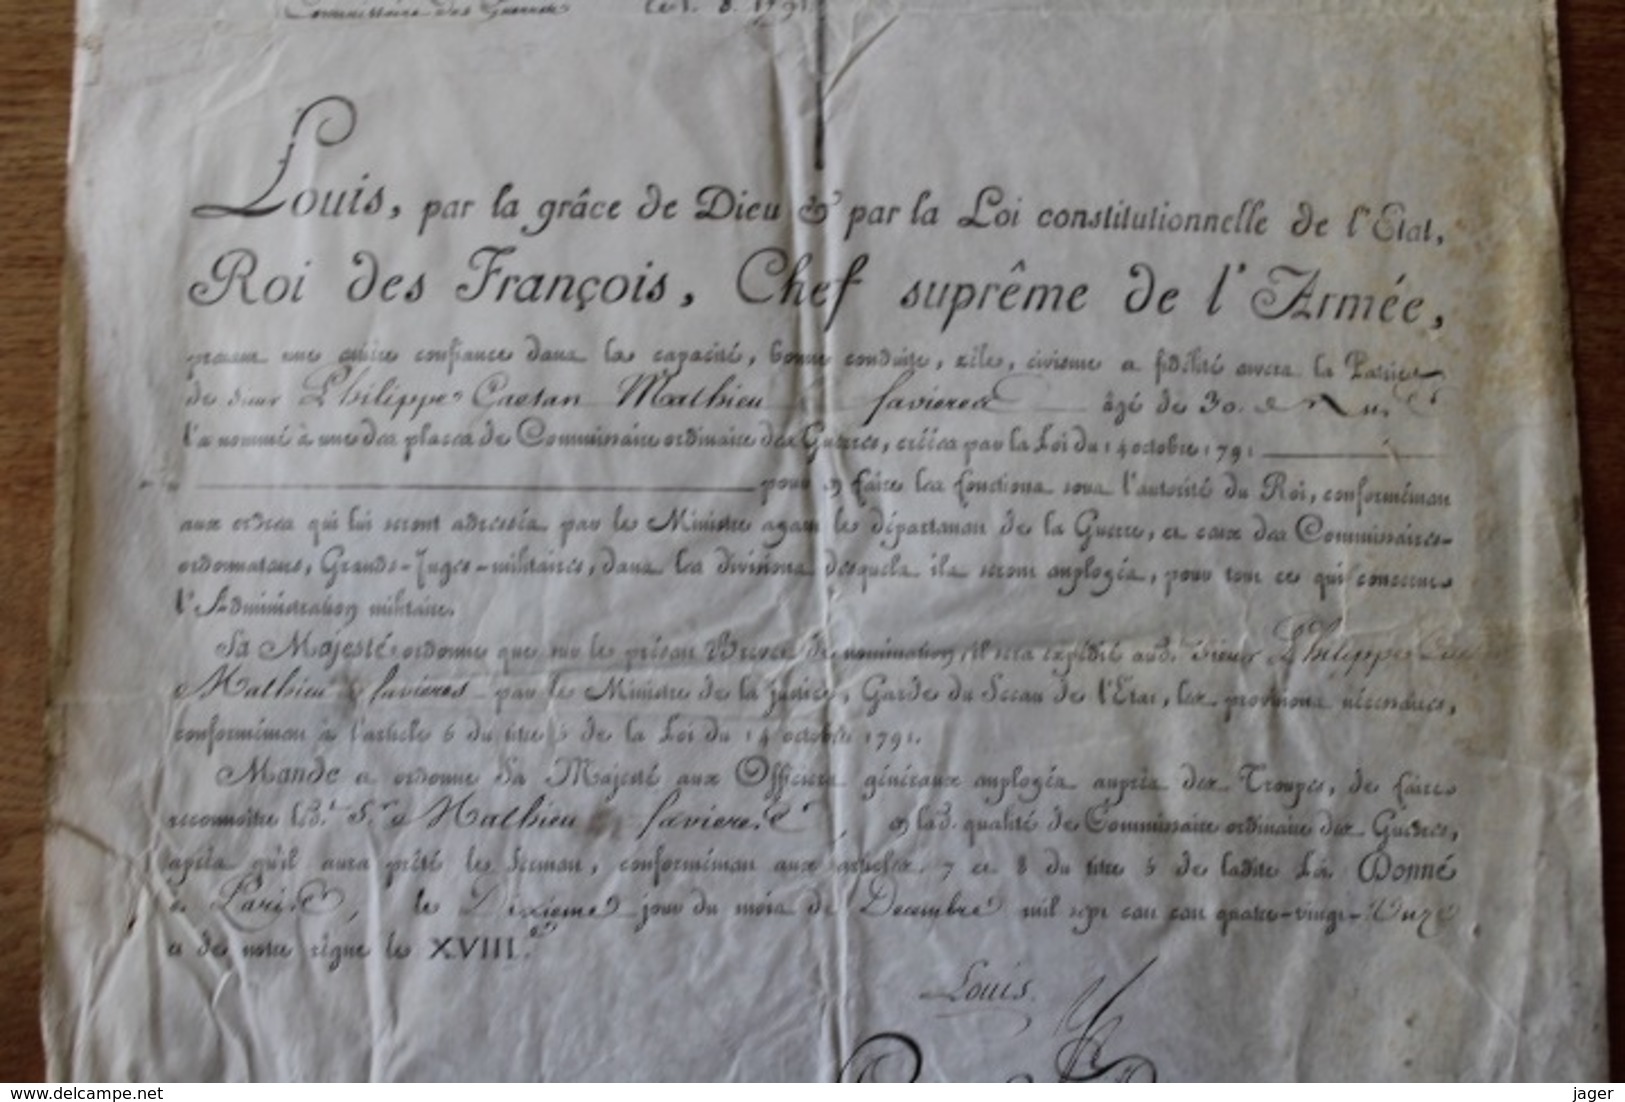 Commissaire des Guerres
Louis, par la grâce de Dieu & par la Loi constitutionnelle de l'Etat,
Roi des François, Chef suprême de l'Armée,
prenant une entière confiance dans la capacité, bonne conduite, zèle, civisme et fidélité envers la Patrie
de sieur Philippe Caetan Mathieu favieres âgé de 30.
l'a nommé à une des places de Commissaire ordinaire des Guerres, créées par la Loi du 14 octobre 1791
pour en faire les fonctions sous l'autorité du Roi, conformément
aux ordres qui lui seront adressés par le Ministre ayant le département de la Guerre, et ceux des Commissaires-
ordonnateurs, Grands-Juges-militaires, dans les divisions desquels ils seront employés, pour tout ce qui concerne
l'Administration militaire.
Sa Majesté ordonne que sur le présent Brevet de nomination, il sera expédié aud. Sieur Philippe
Mathieu favieres par le Ministre de la justice, Garde du Sceau de l'Etat, les provisions nécessaires,
conformément à l'article 6 du titre 5 de la Loi du 14 octobre 1791.
Mande et ordonne Sa Majesté aux Officiers généraux employés auprès des Troupes, de faire
reconnoître led. Sr. Mathieu favieres, en lad. qualité de Commissaire ordinaire des Guerres,
après qu'il aura prêté le Serment, conformément aux articles 7 et 8 du titre 5 de ladite Loi. Donné
à Paris, le Dixieme jour du mois de Decembre mil sept cent quatre-vingt-Onze
et de notre règne le XVIII.e
Louis
www.delcampe.net
jager